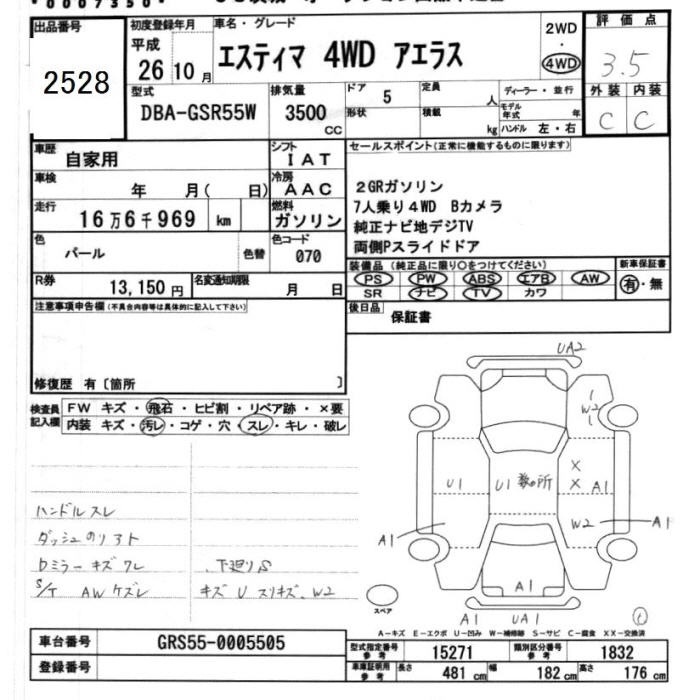 * 0 0 0 7 3 5 0 *
出品番号
2528
初度登録年月
平成
26 10 月
車名・グレード
エスティマ 4WD アエラス
2WD
・
4WD
評価点
3.5
外装 内装
C C
型式
DBA-GSR55W
排気量
3500
CC
ドア 5
形状
定員
人
積載
kg
ディーラー・並行
モデル年式 年
ハンドル 左・右
車歴 自家用
シフト
IAT
車検 年 月( 日)
冷房
AAC
走行 16万6千969 km
燃料
ガソリン
色 パール 色替
色コード
070
R券 13,150 円
名変通知期限 月 日
セールスポイント(正常に機能するものに限ります)
2GRガソリン
7人乗り4WD Bカメラ
純正ナビ地デジTV
両側Pスライドドア
装備品(純正品に限り○をつけてください)
PS PW ABS エアB AW
SR ナビ TV カワ
新車保証書
有・無
後日品
保証書
注意事項申告欄(不具合内容等は具体的に記入して下さい)
修復歴 有〔箇所 〕
検査員記入欄
FW キズ・飛石・ヒビ割・リペア跡・×要
内装 キズ・汚レ・コゲ・穴・スレ・キレ・破レ
ハンドルスレ
ダッシュのリアト
Dミラーキズ ワレ
S/T AW ケズレ
下廻りS
キズ U スリキズ、W2
UA2
W2
U1
U1 数ヶ所
×
×
A1
W2
A1
A1
A1
A1
UA1
スペア
A-キズ E-エクボ U-凹み W-補修跡 S-サビ C-腐食 XX-交換済
車台番号 GRS55-0005505
登録番号
型式指定番号 参考 15271
類別区分番号 参考 1832
車庫証明用 参考 長さ 481 cm 幅 182 cm 高さ 176 cm